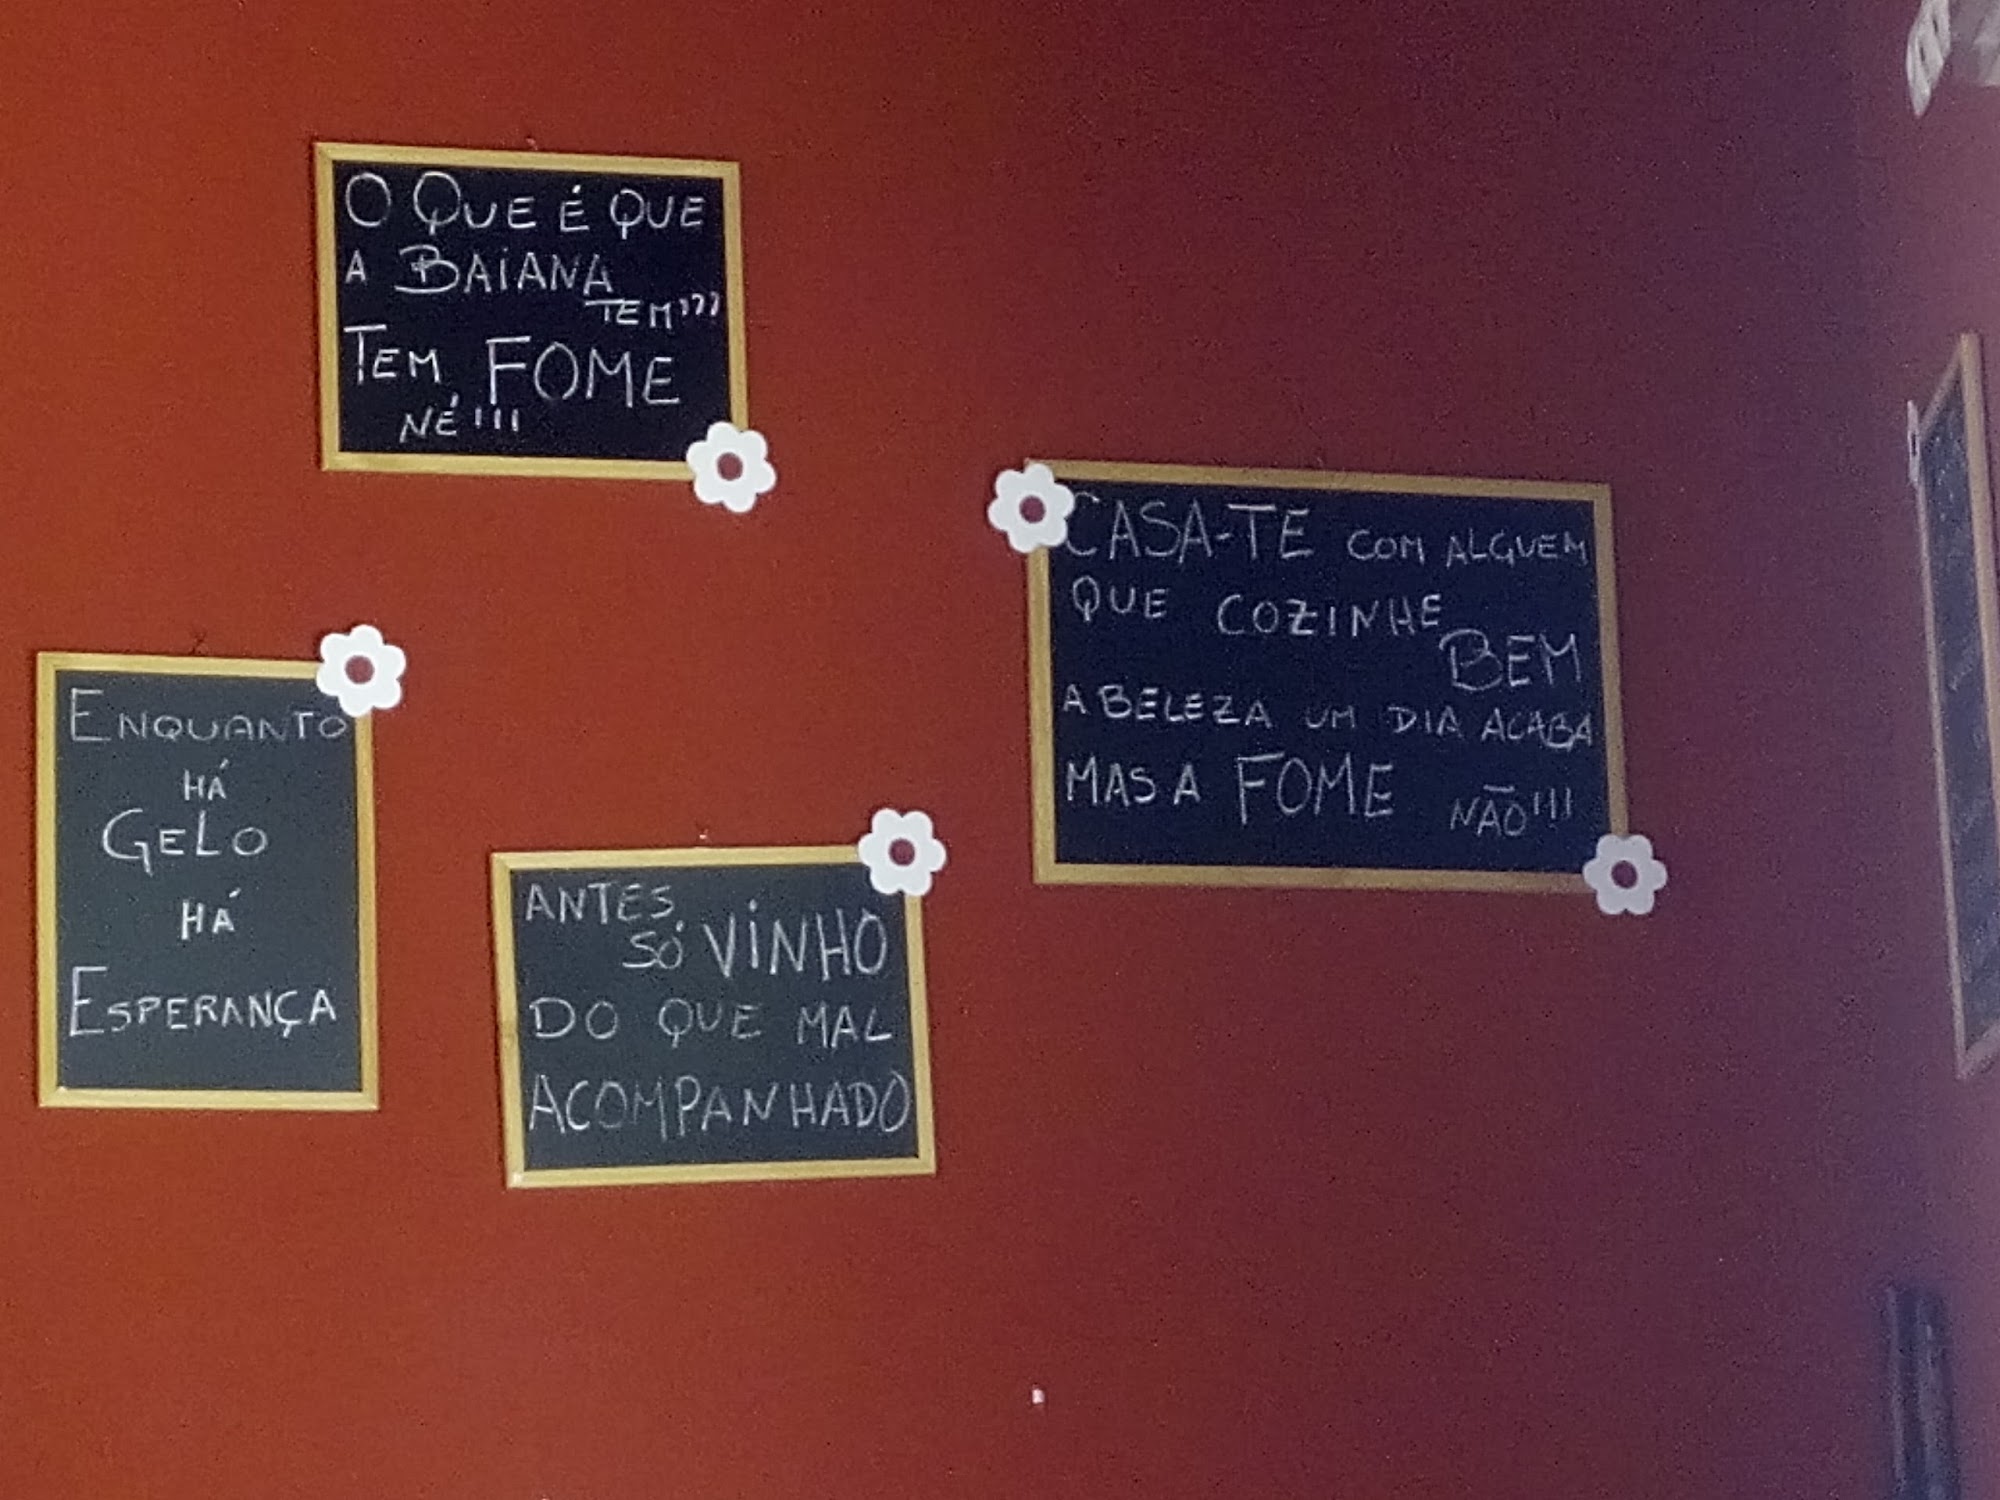 O QUE É QUE
A BAIANA
TEM???
TEM FOME
NÉ!!!
ENQUANTO
HÁ
GELO
HÁ
ESPERANÇA
ANTES
SÓ VINHO
DO QUE MAL
ACOMPANHADO
CASA-TE COM ALGUEM
QUE COZINHE
BEM
A BELEZA UM DIA ACABA
MAS A FOME NÃO!!!